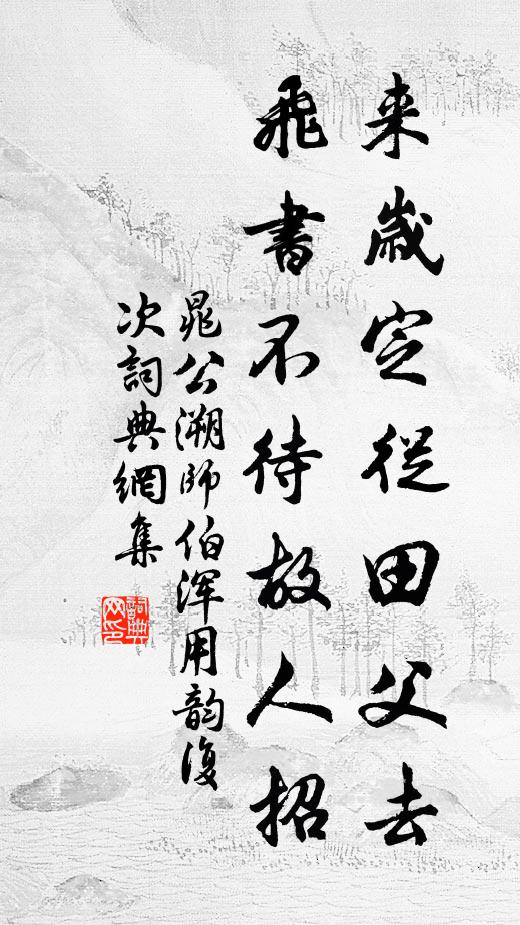 来歲定從田父去
飛書不待故人招
晁公溯師伯渾用韵復
次詞典網集
詞典网印